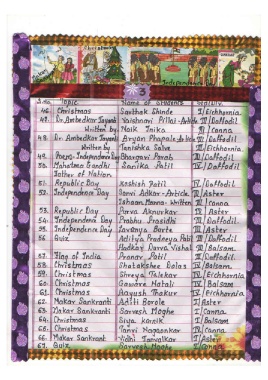 3
Topic Name of Students
46. Christmas Sarthak Shinde I/Eichhornia
47. Dr. Ambedkar Jayanti Vaishnavi Pillai-Article III/Daffodil
Written by Naik Inika II/Canna
48. Dr. Ambedkar Jayanti Aryan -Article III/Daffodil
Written by Tanishka Salve II/Eichhornia
49. Poem-Independence Day Bhargavi Parab II/Daffodil
50. Mahatma Gandhi Sanika Patil II/Daffodil
Father of Nation
51. Republic Day Kashish Patil II/Daffodil
52. Independence Day Sanvi Adkar-Article I/Aster
Ishaan - Written I/Canna
53. Republic Day Purva II/Aster
54. Independence Day Prabhu Prasidhi II/Daffodil
55. Independence Day Lavanya Barte I/Aster
56. Quiz Aditya Pradneya Patil III/Daffodil
Varsha III/Balsam
57. Flag of India Pranav Patil I/Daffodil
58. Christmas I/Balsam
59. Christmas Shreya Talkar III/Eichhornia
60. Christmas Gaurave Hatale III/Balsam
61. Christmas Aayush Thakur II/Eichhornia
62. Makar Sankranti Aditi Borole I/Aster
63. Makar Sankranti Sarvesh Moghe I/Canna
64. Christmas Siya I/Balsam
65. Christmas Tanvi IV/Canna
66. Makar Sankranti Vidhi I/Aster
67. Quiz Sarvesh Moghe I/Canna